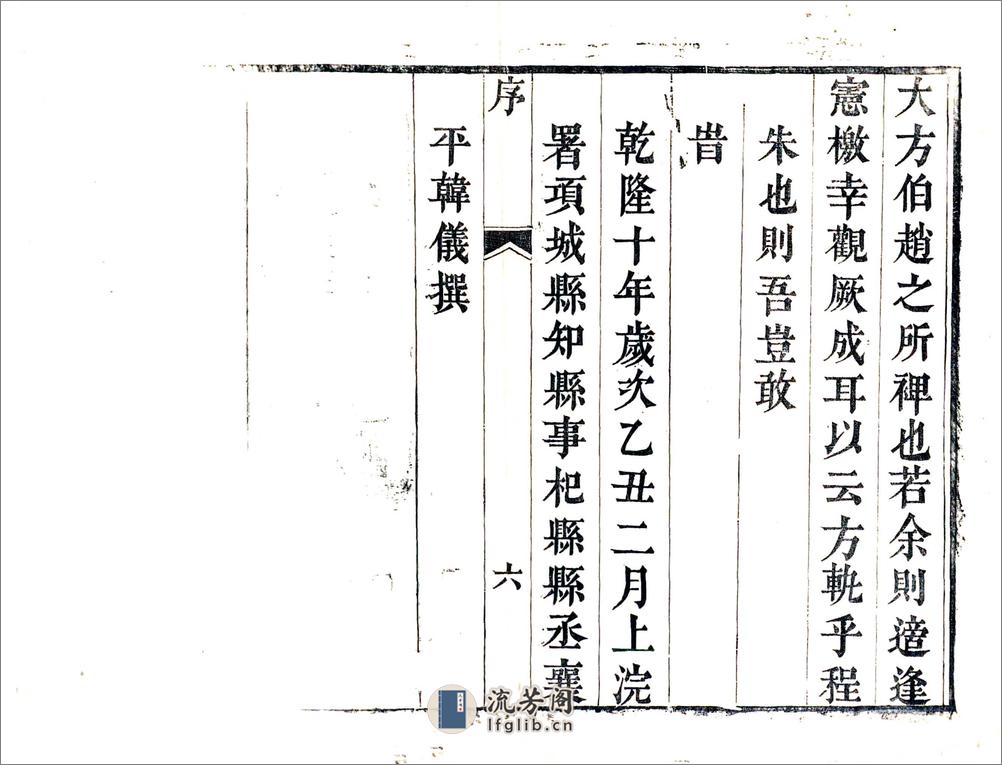 大方伯趙之所裨也若余則適逢
憲檄幸觀厥成耳以云方軌乎程
朱也則吾豈敢
旹
乾隆十年歲次乙丑二月上浣
署項城縣知縣事杞縣縣丞襄
序
六
平韓儀撰
流芳阁
lfglib.cn